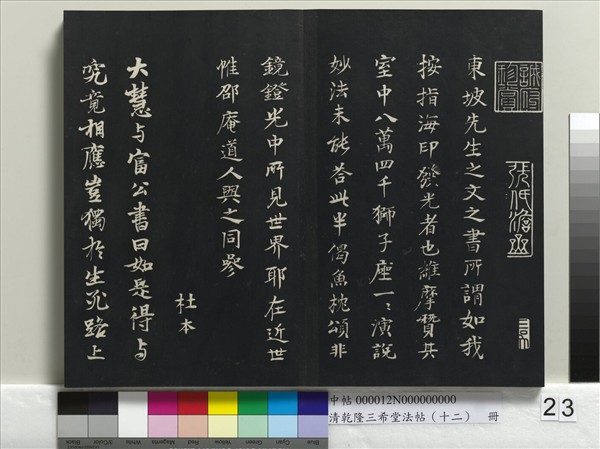 東坡先生之文之書所謂如我
按指海印發光者也維摩贊其
室中八萬四千獅子座一一演說
妙法未能答此半偈魚枕頌非
鏡鐙光中所見世界耶在近世
惟邵庵道人與之同參
杜本
大慧與富公書曰如是得与
究竟相應豈獨於生死路上
中帖 000012N000000000
清乾隆三希堂法帖(十二) 冊
23
Black
3/Color
White
Magenta
Red
Yellow
Green
Cyan
Blue